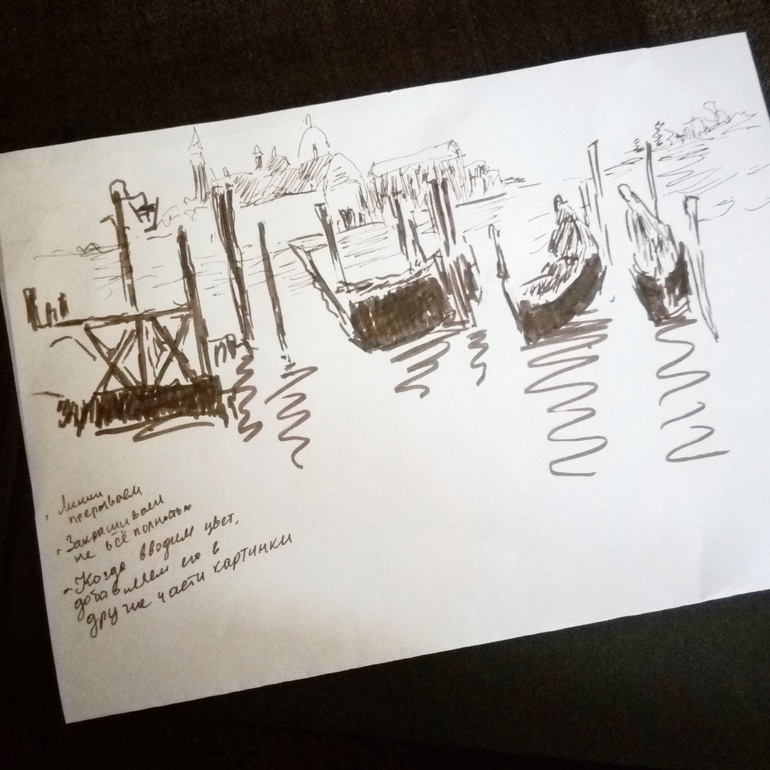 · Линии
прерываем
· Закрашиваем
не всё полностью
- Когда вводим цвет,
добавляем его в
другие части картинки